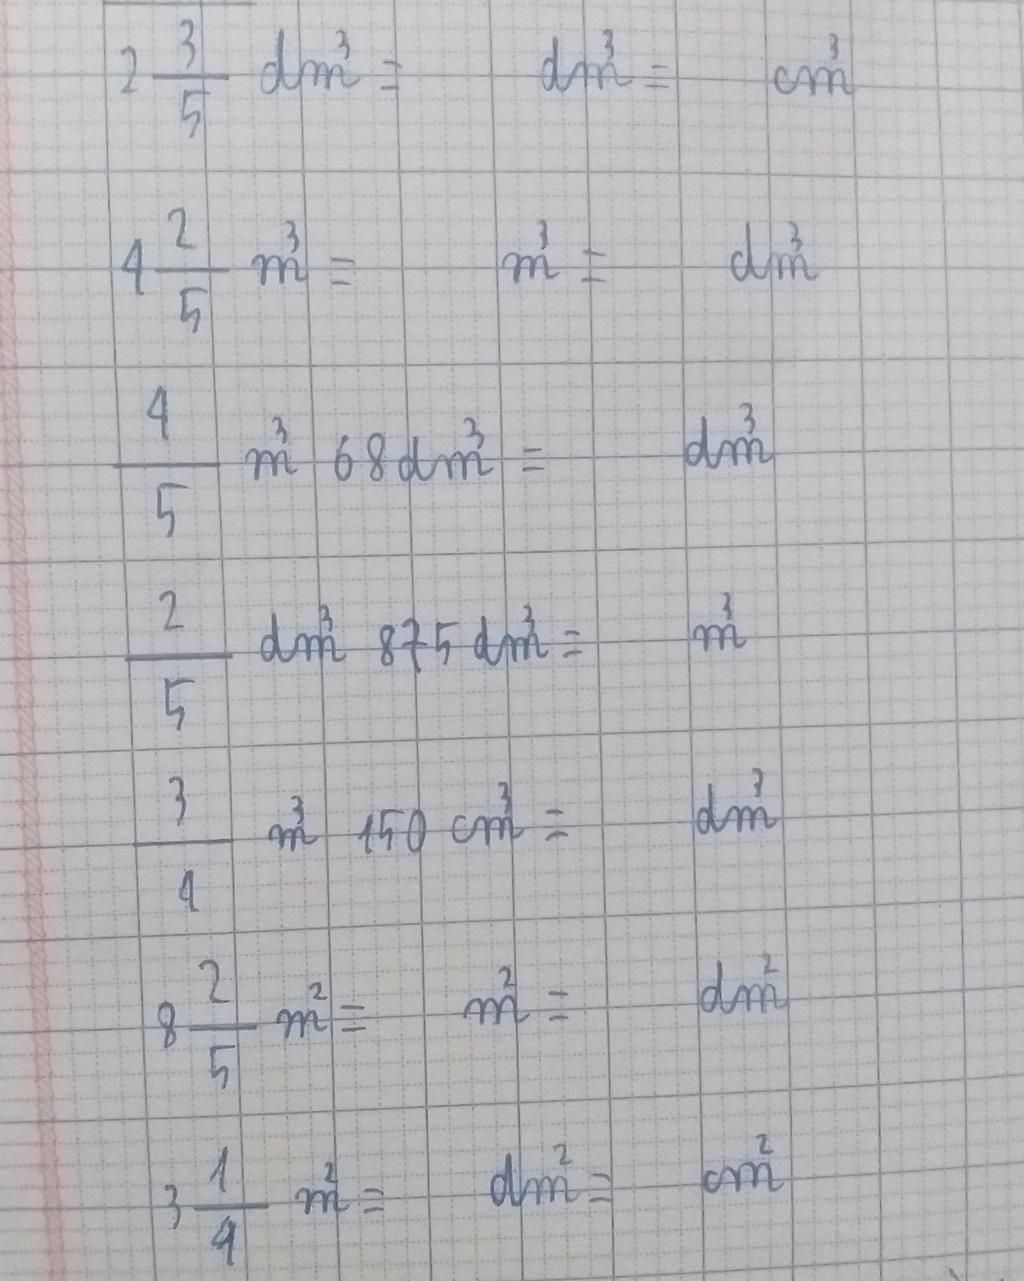 2 3/5 dm³ = dm³ = cm³
4 2/5 m³ = m³ = dm³
4/5 m³ 68 dm³ = dm³
2/5 dm³ 875 dm³ = m³
3/4 m³ 150 cm³ = dm³
8 2/5 m² = m² = dm²
3 1/4 m² = dm² = cm²